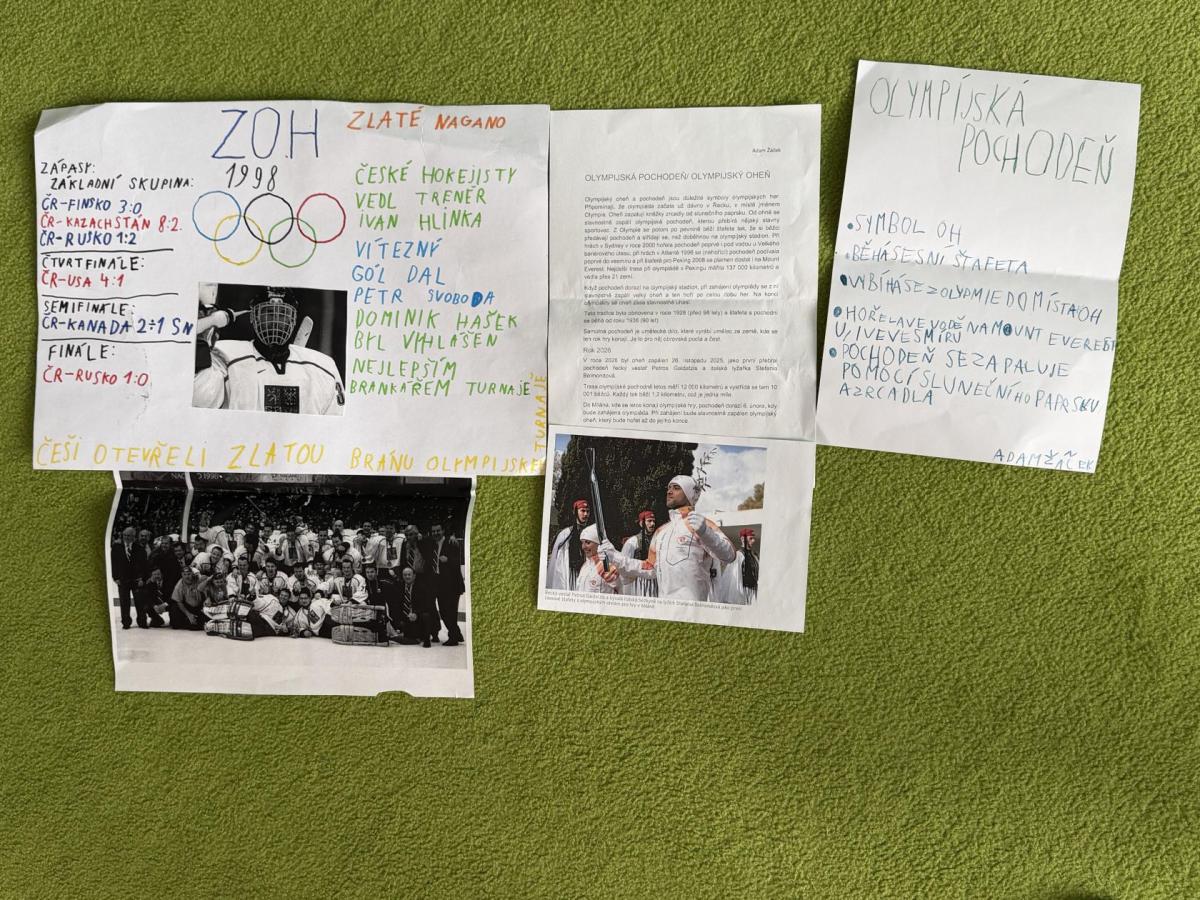 ZOH
1998
ZLATÉ NAGANO
ZÁPASY:
ZÁKLADNÍ SKUPINA:
ČR-FINSKO 3:0
ČR-KAZACHSTÁN 8:2
ČR-RUSKO 1:2
ČTVRTFINÁLE:
ČR-USA 4:1
SEMIFINÁLE:
ČR-KANADA 2:1 SN
FINÁLE:
ČR-RUSKO 1:0
ČESKÉ HOKEJISTY
VEDL TRENÉR
IVAN HLINKA
VÍTEZNÝ
GÓL DAL
PETR SVOBODA
DOMINIK HAŠEK
BYL VYHLÁŠEN
NEJLEPŠÍM
BRANKÁŘEM TURNAJE
ČEŠI OTEVŘELI ZLATOU BRÁNU OLYMPIJSKÉ
TURNAJE
Adam Žáček
OLYMPIJSKÁ POCHODEŇ/ OLYMPIJSKÝ OHEŇ
Olympijský oheň a pochodeň jsou důležité symboly olympijských her
Připomínají, že olympiáda začala už dávno v Řecku, v místě jménem
Olympia. Oheň zapalují kněžky zrcadly od slunečního paprsku. Od ohně se
slavnostně zapálí olympijská pochodeň, kterou přebírá nějaký slavný
sportovec. Z Olympie se potom po pevnině běží štafeta tak, že si běžci
předávají pochodeň a střídají se, než doběhnou na olympijský stadion. Při
hrách v Sydney v roce 2000 hořela pochodeň poprvé i pod vodou u Velkého
bariérového útesu, při hrách v Atlantě 1996 se (nehořící) pochodeň podívala
poprvé do vesmíru a při štafetě pro Peking 2008 se plamen dostal i na Mount
Everest. Nejdelší trasa při olympiádě v Pekingu měřila 137 000 kilometrů a
vedla přes 21 zemí.
Když pochodeň dorazí na olympijský stadion, při zahájení olympiády se z ní
slavnostně zapálí velký oheň a ten hoří po celou dobu her. Na konci
olympiády se oheň zase slavnostně uhasí.
Tato tradice byla obnovena v roce 1928 (před 98 lety) a štafeta s pochodní
se běhá od roku 1936 (90 let)
Samotná pochodeň je umělecké dílo, které vyrábí umělec ze země, kde se
ten rok hry konají. Je to pro něj obrovská pocta a čest.
Rok 2026
V roce 2026 byl oheň zapálen 26. listopadu 2025, jako první přebral
pochodeň řecký veslař Petros Gaidatzis a italská lyžařka Stefania
Belmondová.
Trasa olympijské pochodně letos měří 12 000 kilometrů a vystřídá se tam 10
001 běžců. Každý tek běží 1,2 kilometru, což je jedna míle.
Do Milána, kde se letos konají olympijské hry, pochodeň dorazí 6. února, kdy
bude zahájena olympiáda. Při zahájení bude slavnostně zapálen olympijský
oheň, který bude hořet až do jejího konce.
Řecký veslař Petros Gaidatzis a bývalá italská běžkyně na lyžích Stefania Belmondová jako první
OLYMPÍJSKÁ
POCHODEŇ
•SYMBOL OH
•BĚHÁSESNÍ ŠTAFETA
•VYBÍHÁSEZOLYPMIEDOMÍSTAOH
•HOŘELAVEVODĚNAMOUNT EVEREST
U, IVEVESMÍRU
•POCHODEŇ SEZAPALUJE
POMOCÍSLUNEČNÍHOPAPRSKU
AZRCADLA
ADAMŽÁČEK